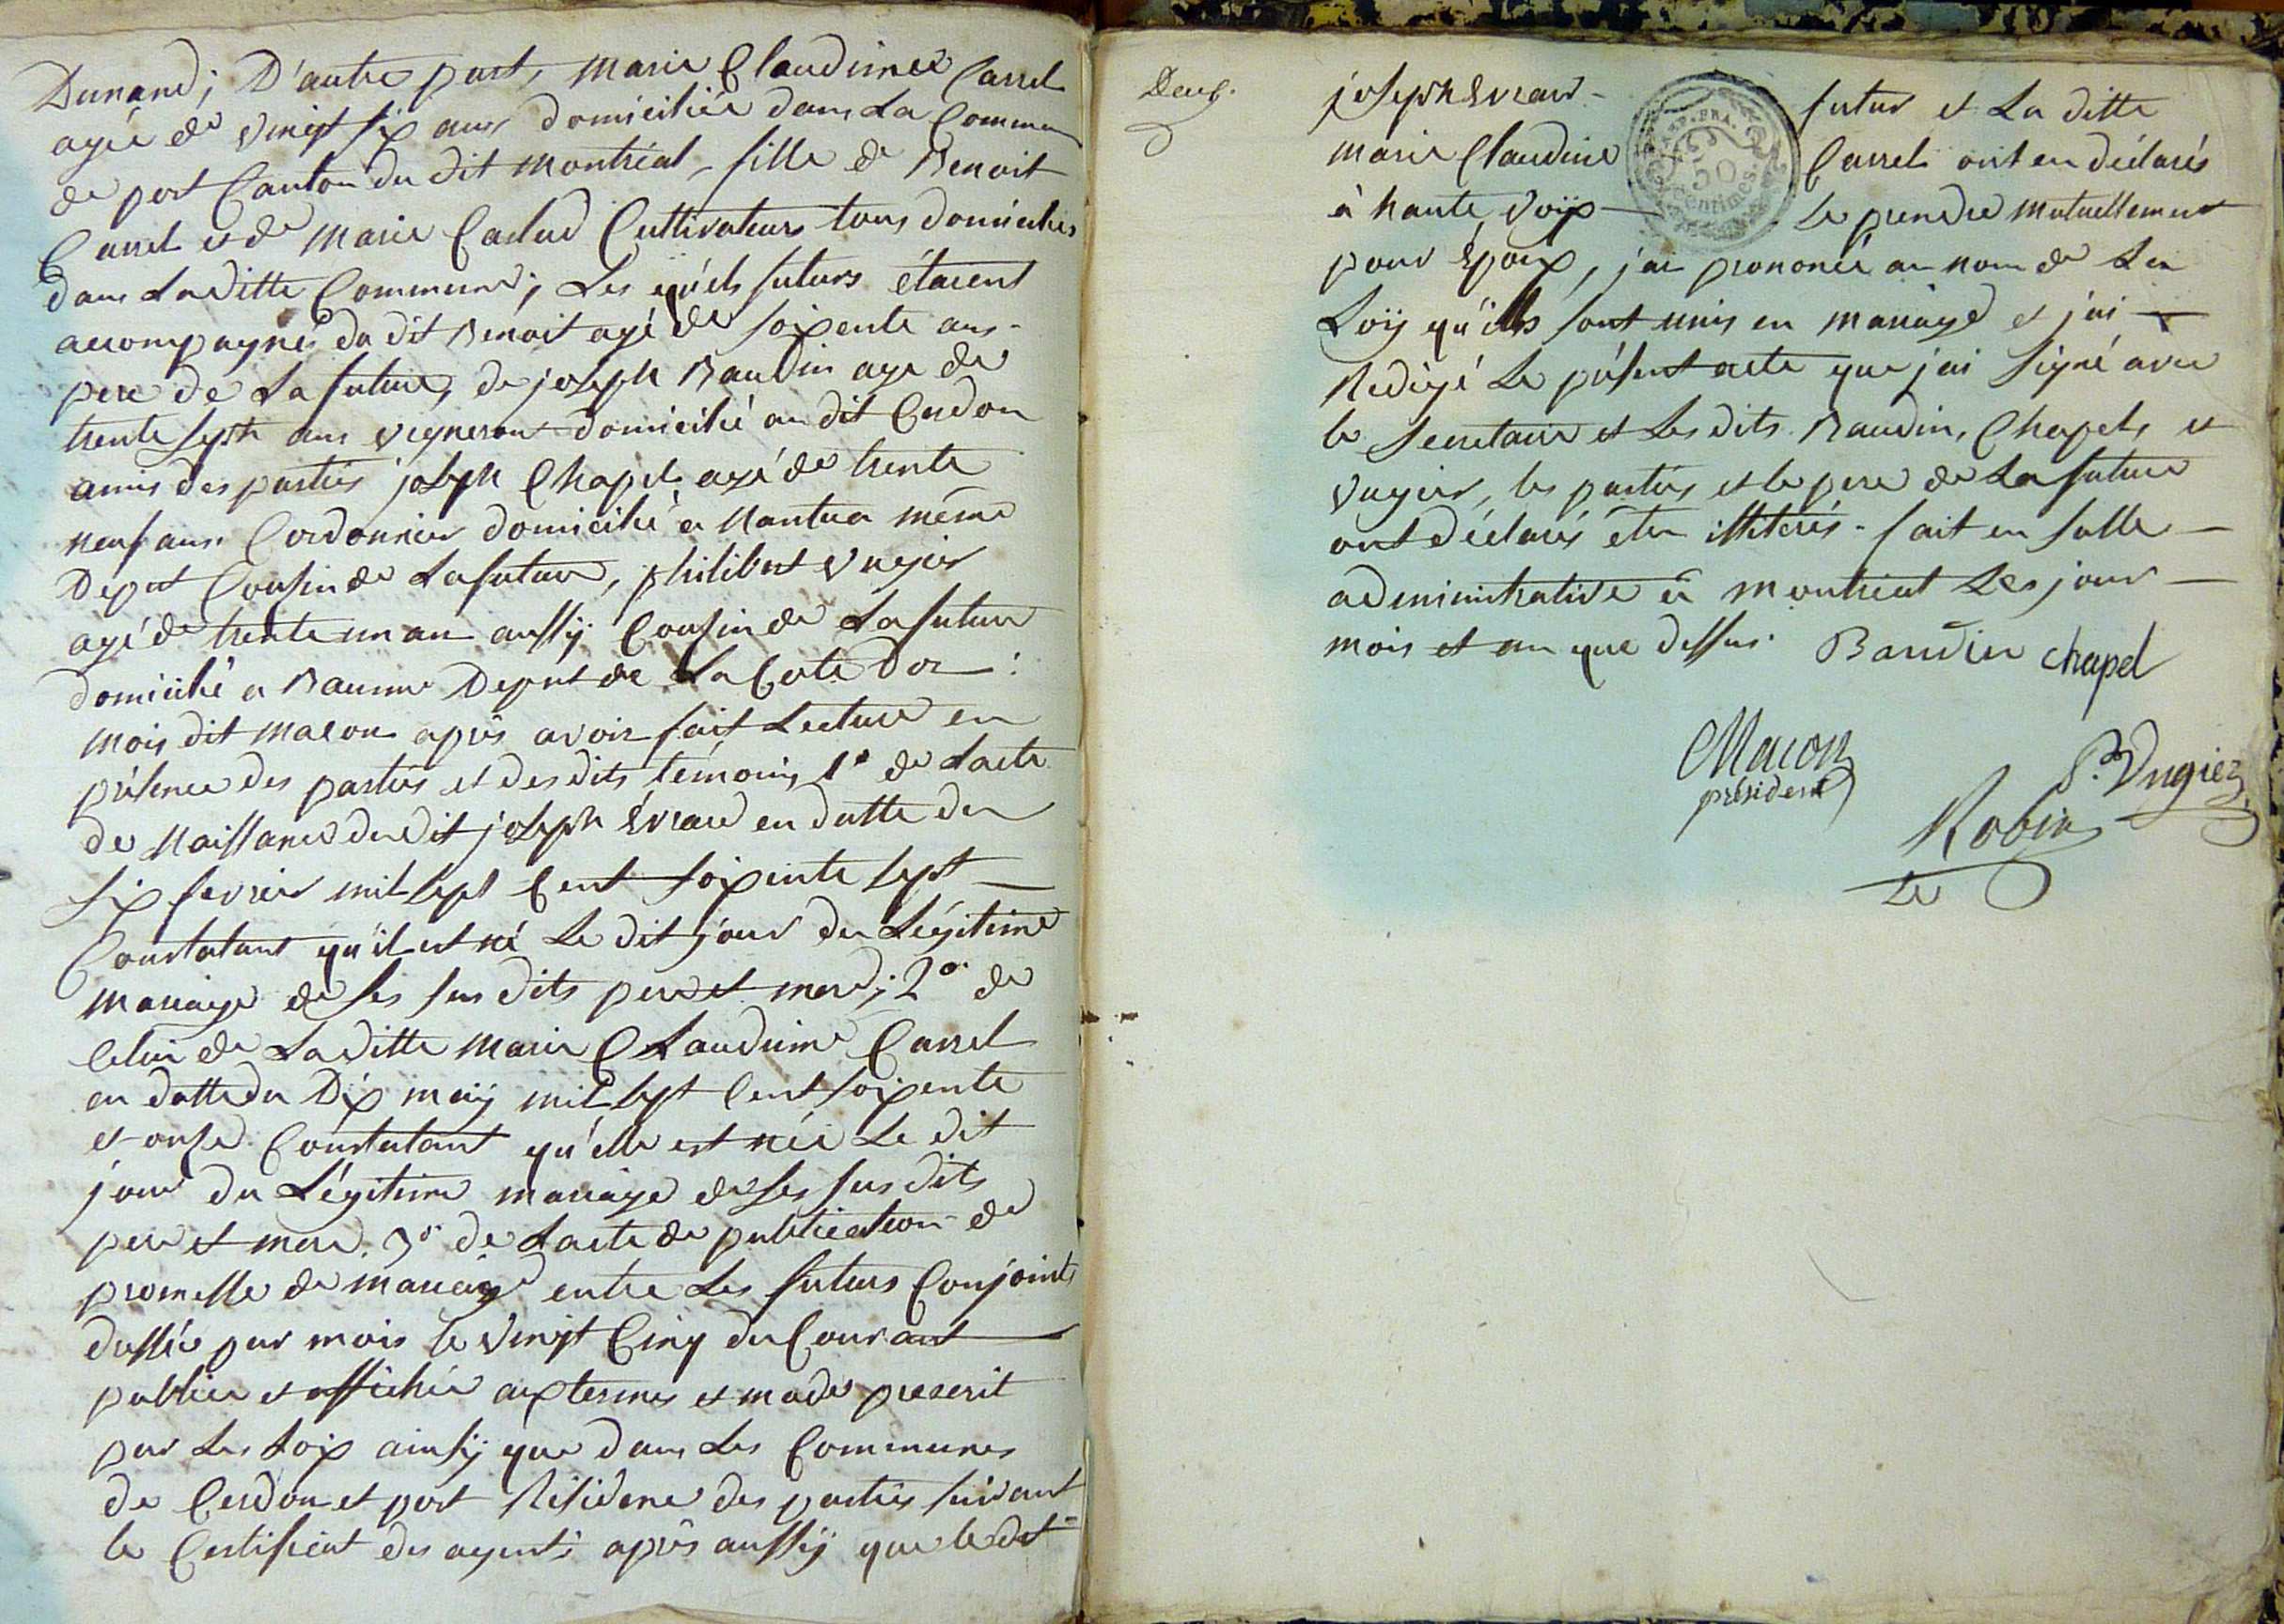 Dunand; D'autre part, Marie Claudine Carrel
agée de vingt six ans domiciliée dans La Commune
de port Canton du dit Montréal, fille de Benoit
Carrel et de Marie Carlud Cultivateurs tous domiciliés
dans La ditte Commune; Les quéls futurs étaient
accompagnés du dit Benoit agé de soixente ans -
pere de La future, de joseph Baudin age de
trente septs ans vigneron domicilié au dit Cerdon
amis des parties joseph Chapel agé de trente
neuf ans Cordonnier domicilié a Nantua même
Depnt Cousin de La future, philibert vugier
agé de trente un an aussÿ Cousin de La future
domicilié a Baunne Depnt de La Cote D'or :
mois dit macon après avoir fait Lecture en
présence des parties et des dits témoins, 1° de Lacte
de Naissance du dit joseph Évrard en datte du
six fevrier mil sept Cent soixente sept —
Constatant qu'il est né Le dit jour du Légitime
mariage de ses sus dits pere et mere; 2° de
Celui de La ditte Marie Claudine Carrel
en datte du Dix maÿ mil sept Cent soixente
et onse Constatant qu'elle est née Le dit
jour du Légitime mariage de ses sus dits
pere et mere. 3° de Lacte de publication de
promesse de mariage entre Les futurs Conjoints
dressée par mois le vingt Cinq du Courant
publiée et affichée aux termes et mode prescrit
par Les Loix ainsÿ que dans Les Communes
de Cerdon et port Résidence des parties suivant
le Certificat des agents après aussÿ que le dit
Deux.
joseph Evrard - futur et La ditte
marie Claudine Carrel ont eu déclarés
à haute voix — Se prendre mutuellement
TIMB. FRA.
50
Centimes.
pour Époux, j'ai prononcé au nom de La
Loÿ qu'ills sont unis en mariage et j'ai —
Redigé Le présent acte que j'ai signé avec
le Secretaire et Les dits Baudin, Chapel, et
vugier, les parties et le pere de La future
ont déclarés être illiterés - fait en salle —
administrative à Montréal Les jour —
mois et an que dessus. Baudin chapel
Macon
président
P. Vugiez
Robin
Se